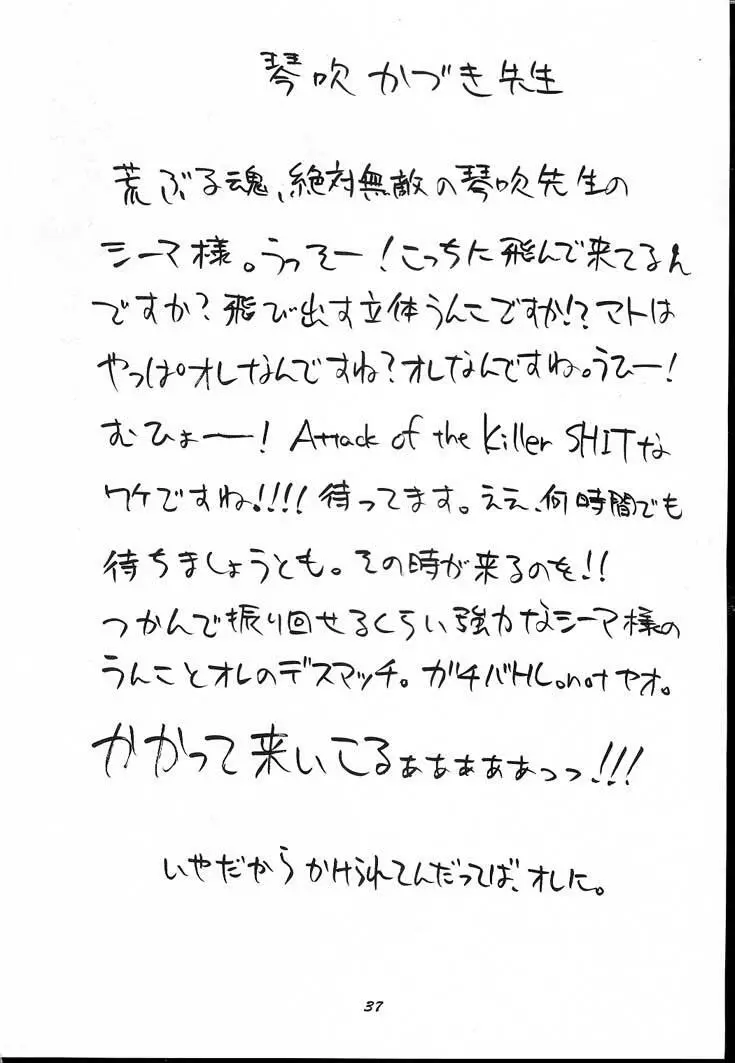 琴吹かづき先生
荒ぶる魂、絶対無敵の琴吹先生の
シーマ様。うっそー！こっちに飛んで来てるん
ですか？飛び出す立体うんこですか!?マトは
やっぱオレなんですね？オレなんですね。うひー！
むひょー！Attack of the Killer SHITな
ワケですね!!!!待ってます。ええ、何時間でも
待ちましょうとも。その時が来るのを!!
つかんで振り回せるくらい強力なシーマ様の
うんことオレのデスマッチ。ガチバトル。notヤオ。
かかって来いこるぁぁぁぁぁっっ!!!
いやだからかけられてんだってば、オレに。
37